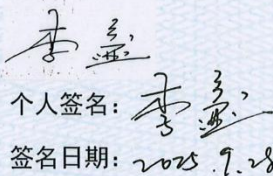 李
个人签名：李
签名日期：2025.9.28